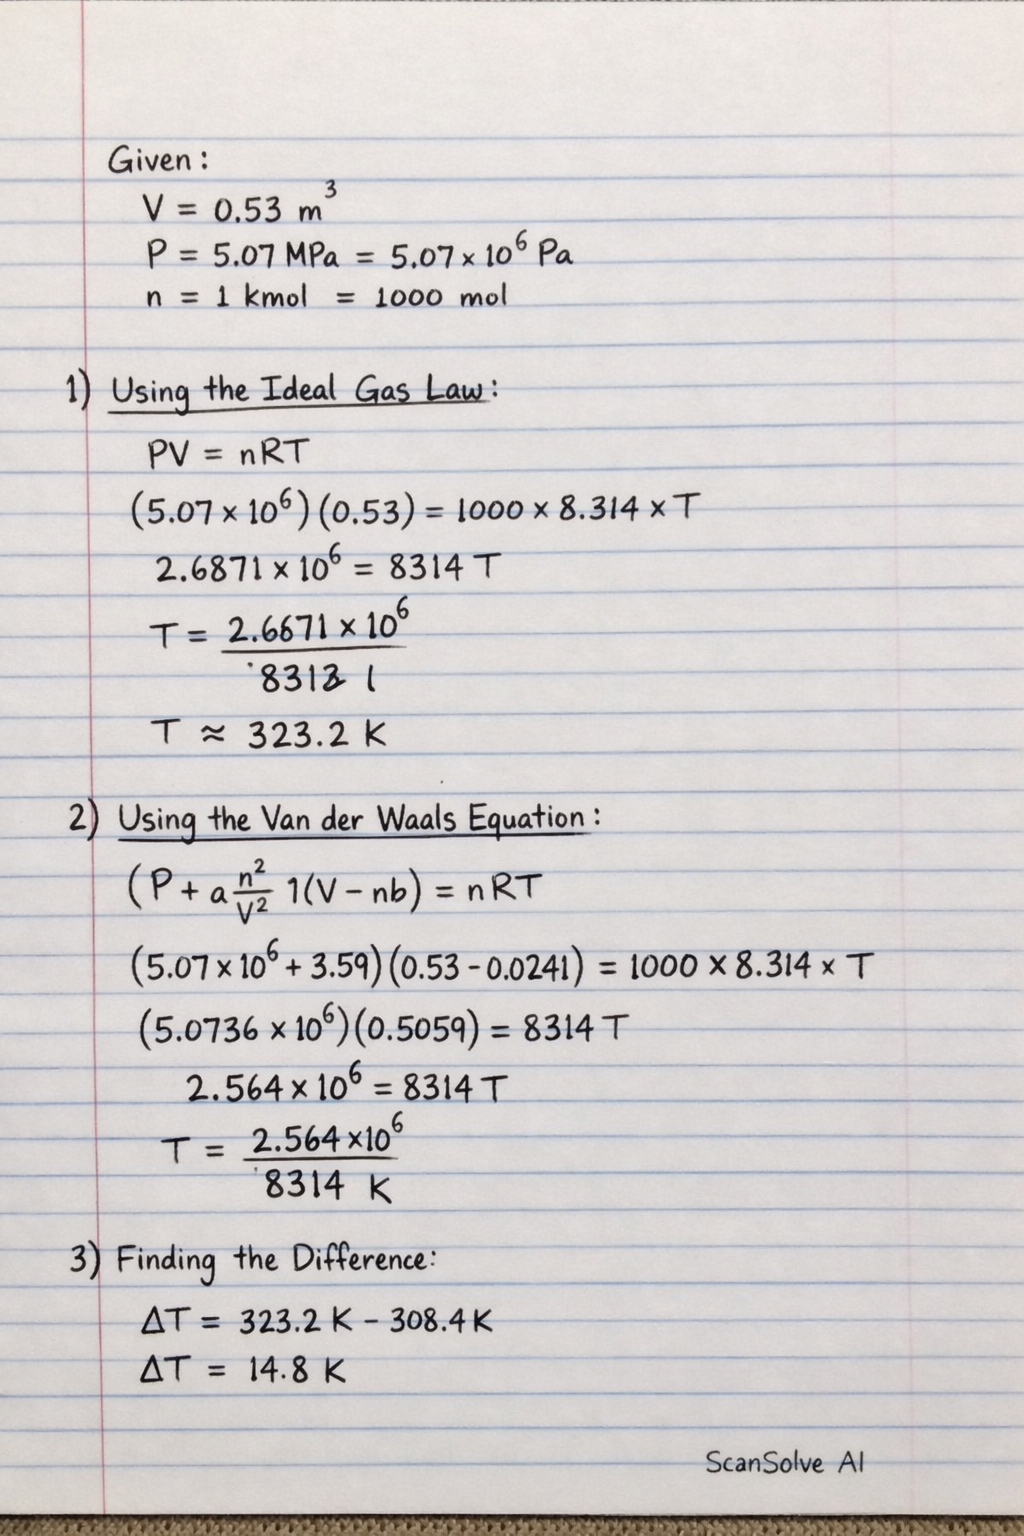 Given:
V = 0.53 m³
P = 5.07 MPa = 5.07 × 10⁶ Pa
n = 1 kmol = 1000 mol
1) Using the Ideal Gas Law:
PV = nRT
(5.07 × 10⁶)(0.53) = 1000 × 8.314 × T
2.6871 × 10⁶ = 8314 T
T = 2.6671 × 10⁶
8313 1
T ≈ 323.2 K
2) Using the Van der Waals Equation:
(P + a n²/V² 1(V - nb) = nRT
(5.07 × 10⁶ + 3.59)(0.53 - 0.0241) = 1000 × 8.314 × T
(5.0736 × 10⁶)(0.5059) = 8314 T
2.564 × 10⁶ = 8314 T
T = 2.564 × 10⁶
8314 K
3) Finding the Difference:
ΔT = 323.2 K - 308.4 K
ΔT = 14.8 K
ScanSolve AI